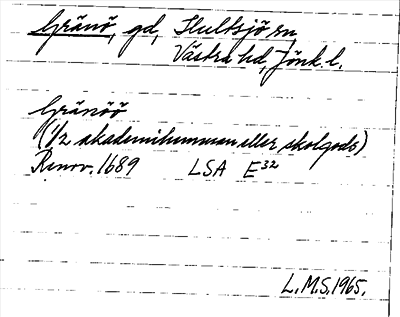 Gränö, gd, Hultsjö sn,
Västra hd, Jönk. l.
Gränöö
(1/2 akademihemman eller skolgods)
Renov. 1689 LSA E32
L.M.S. 1965.